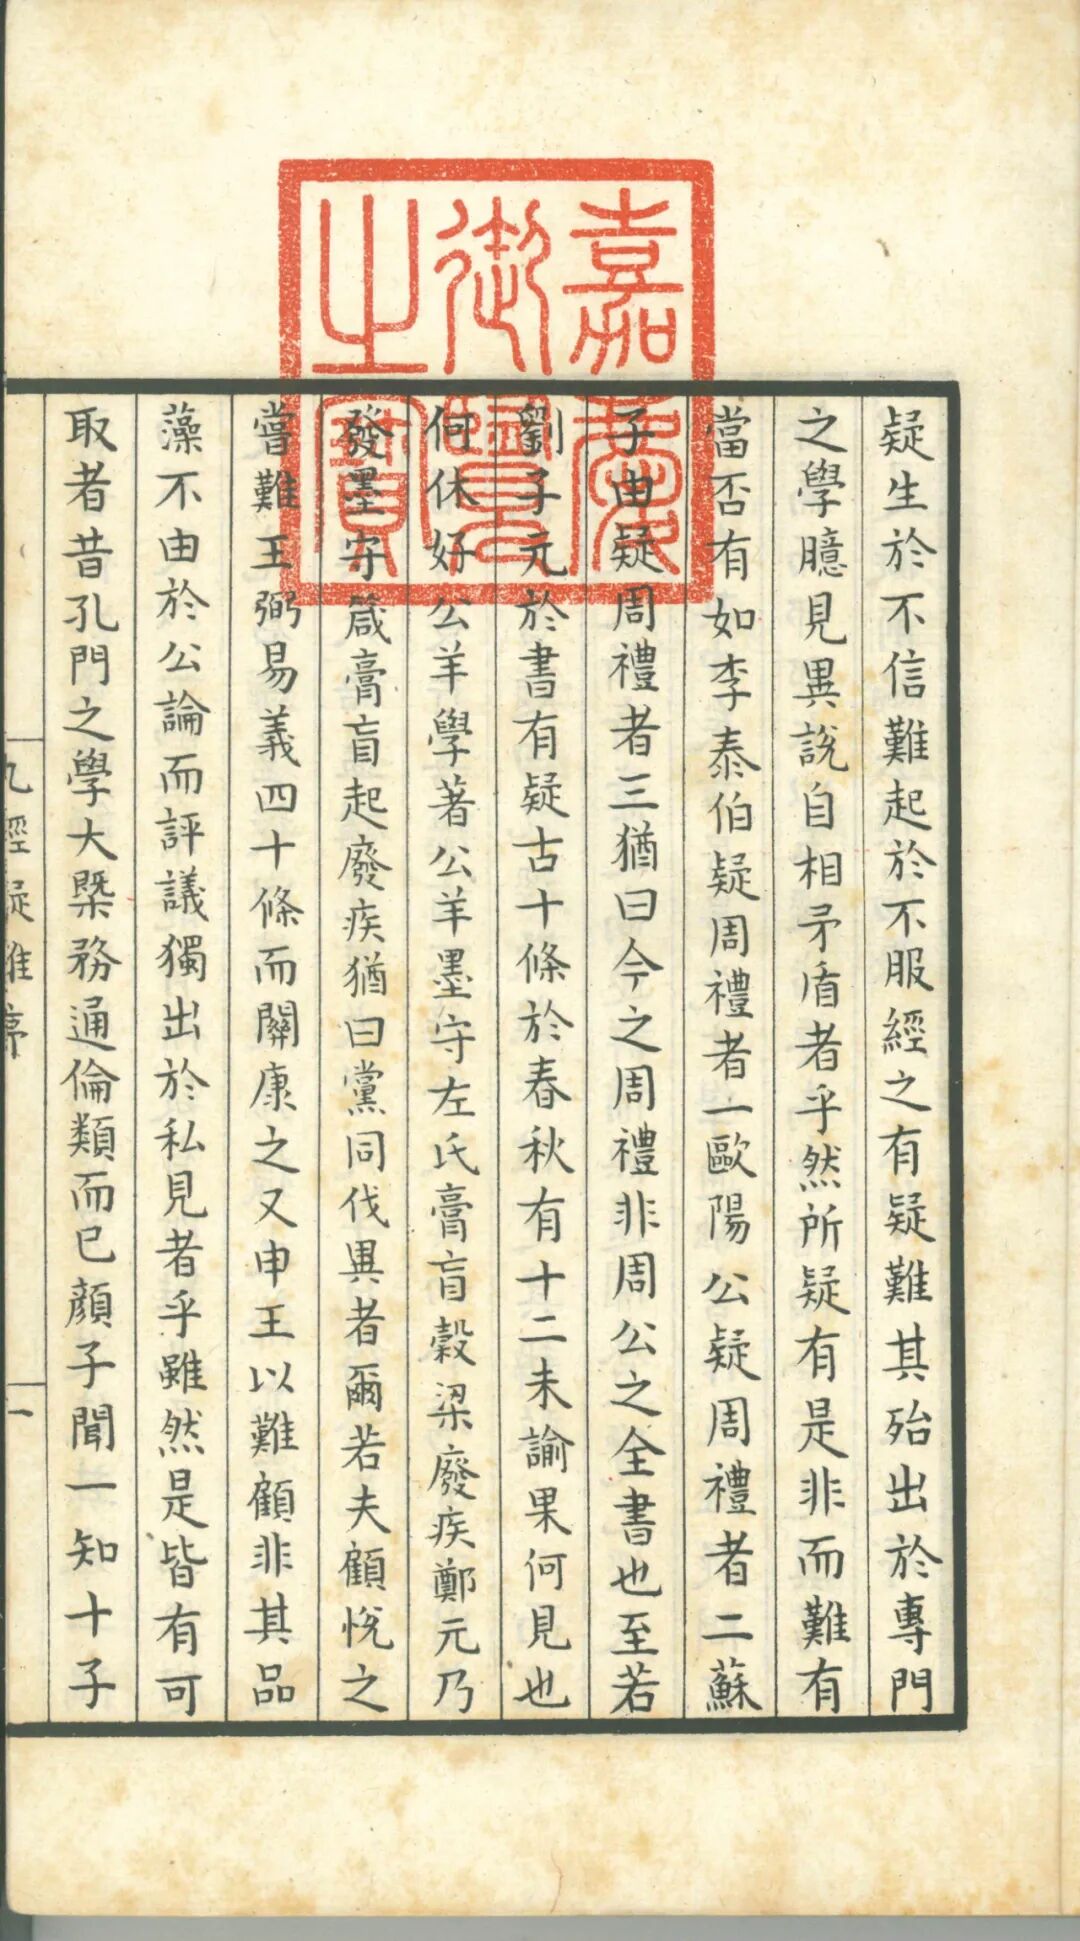 嘉慶御覽之寶
疑生於不信難起於不服經之有疑難其殆出於專門
之學臆見異說自相矛盾者乎然所疑有是非而難有
當否有如李泰伯疑周禮者一歐陽公疑周禮者二蘇
子由疑周禮者三猶曰今之周禮非周公之全書也至若
劉子元於書有疑古十條於春秋有十二未諭果何見也
何休好公羊學著公羊墨守左氏膏盲穀梁廢疾鄭元乃
發墨守箴膏盲起廢疾猶曰黨同伐異者爾若夫顧悅之
嘗難王弼易義四十條而關康之又申王以難顧非其品
藻不由於公論而評議獨出於私見者乎雖然是皆有可
取者昔孔門之學大槩務通倫類而已顏子聞一知十子
九經疑難序
一